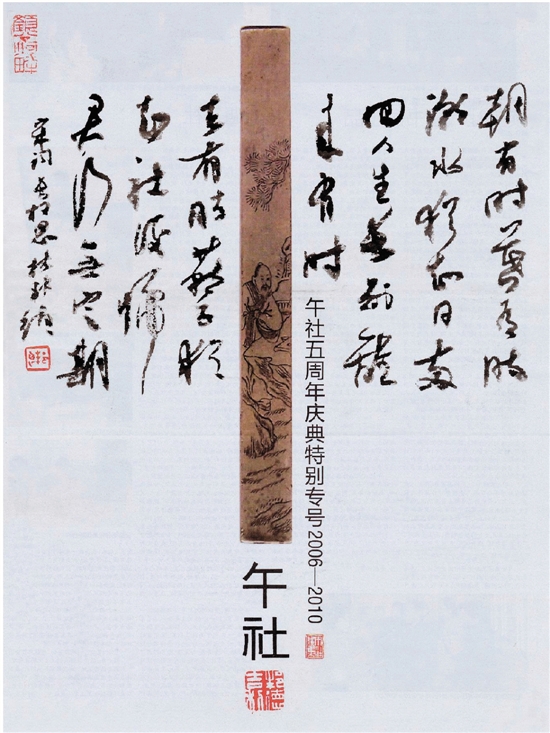 朝有时暮有时
潮水犹知日两
回人生长别離
来有时
去有时燕子犹
知社後歸
君行无定期
宋词长相思
午社五周年庆典特别专号2006—2010
午社